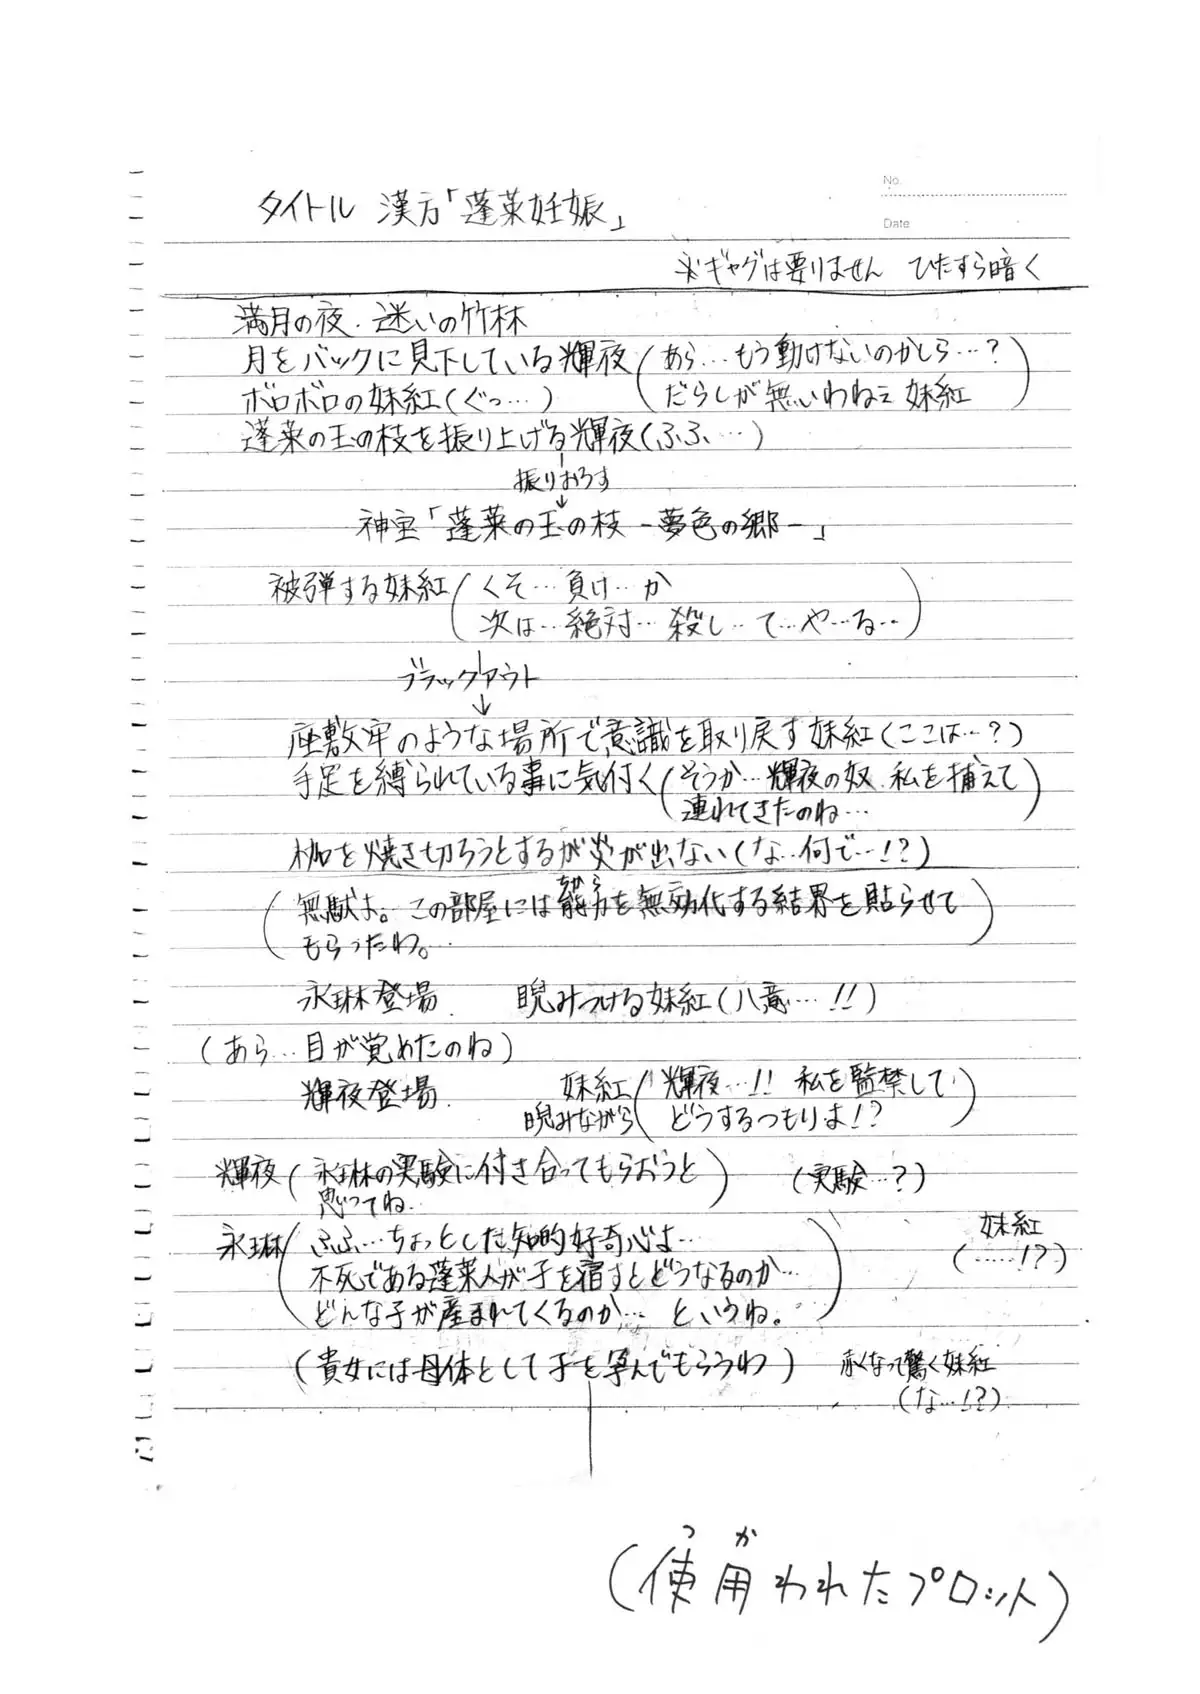 No.
Date
タイトル 漢方「蓬莱妊娠」
※ギャグは要りません ひたすら暗く
満月の夜.迷いの竹林
月をバックに見下している輝夜(あら…もう動けないのかしら…?
だらしが無いわねぇ 妹紅)
ボロボロの妹紅(ぐっ…)
蓬莱の玉の枝を振り上げる輝夜(ふふ…)
振りおろす
神宝「蓬莱の玉の枝 -夢色の郷-」
被弾する妹紅(くそ…負け…か
次は…絶対…殺し…て…や…る…)
ブラックアウト
座敷牢のような場所で意識を取り戻す妹紅(ここは…?)
手足を縛られている事に気付く(そうか…輝夜の奴.私を捕えて
連れてきたのね…)
枷を焼き切ろうとするが炎が出ない(な…何で…!?)
(無駄よ。この部屋には能力を無効化する結界を貼らせて
ちから
もらったわ。)
永琳登場. 睨みつける妹紅(八意…!!)
(あら…目が覚めたのね)
輝夜登場. 妹紅睨みながら(輝夜…!! 私を監禁して
どうするつもりよ!?)
輝夜(永琳の実験に付き合ってもらおうと
思ってね…) (実験…?)
永琳(ふふ…ちょっとした知的好奇心よ…
不死である蓬莱人が子を宿すとどうなるのか…
どんな子が産まれてくるのか… というね。)
妹紅
(……!?)
(貴女には母体として子を孕んでもらうわ) 赤くなって驚く妹紅
(な…!?)
つか
(使用われたプロット)